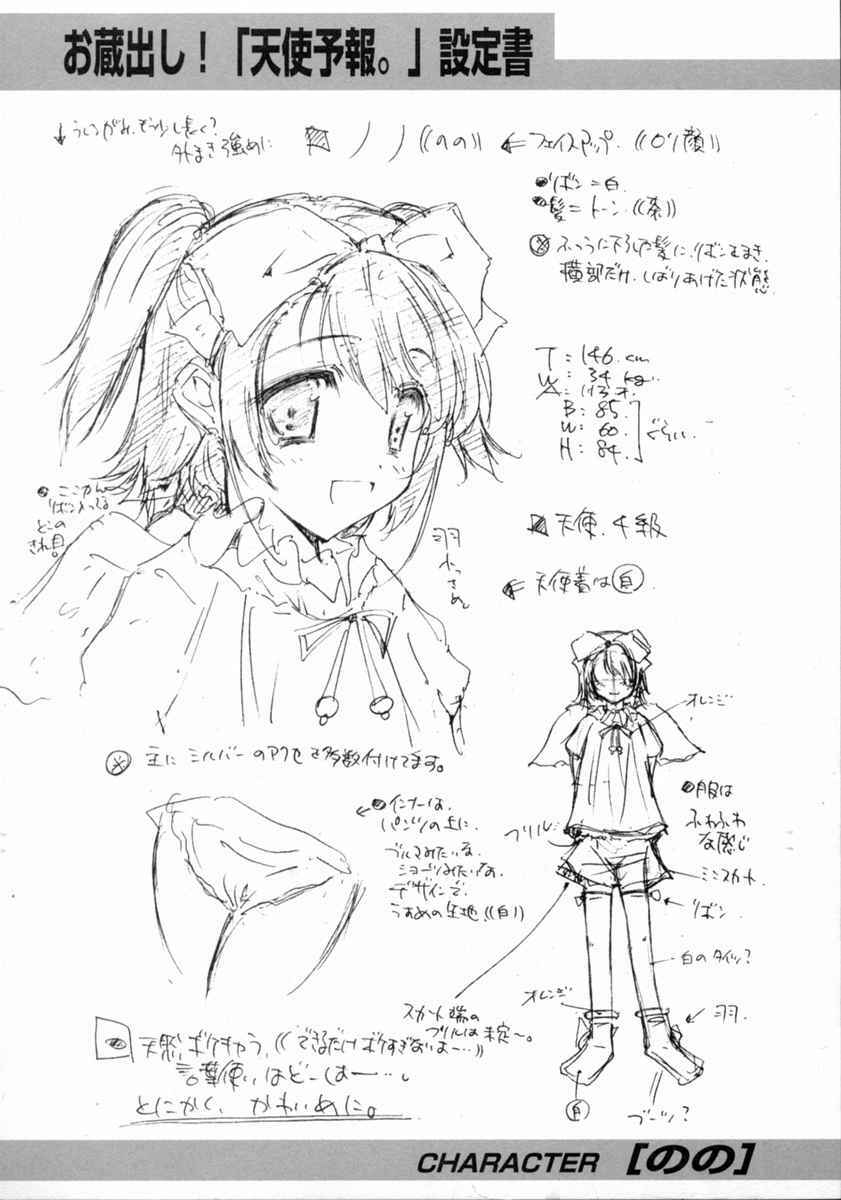 お蔵出し！「天使予報。」設定書
↓うしろがみ、もう少し長く？
外まき強めに
ノノ((のの)) ←フェイスアップ. ((ロリ顔))
リボン＝白.
髪＝トーン.((茶))
ふつうに下ろした髪に、リボンをまき.
横部だけ.しばりあげた状態
T：146.cm
W：34 kg.
B：85.
W：60. ぐらい.
H：84.
リボン入ってる
どこの
羽
小さめ
天使.4級
天使着は白.
オレンジ
※ 主にシルバーのアクセを多数付けてます。
服は
ふわふわ
な感じ
インナーは.
パンツの上に.
ブルマみたいな.
ショーツみたいな.
デザインで.
うすめの生地.((白))
フリル
ミニスカート.
リボン.
白のタイツ？
オレンジ
羽.
スカート端の
フリルは未定〜。
天然ボケキャラ.((できるだけボケすぎないよー…))
言葉使いはどーしよー….
とにかく、かわいめに。
白
ブーツ？
CHARACTER [のの]